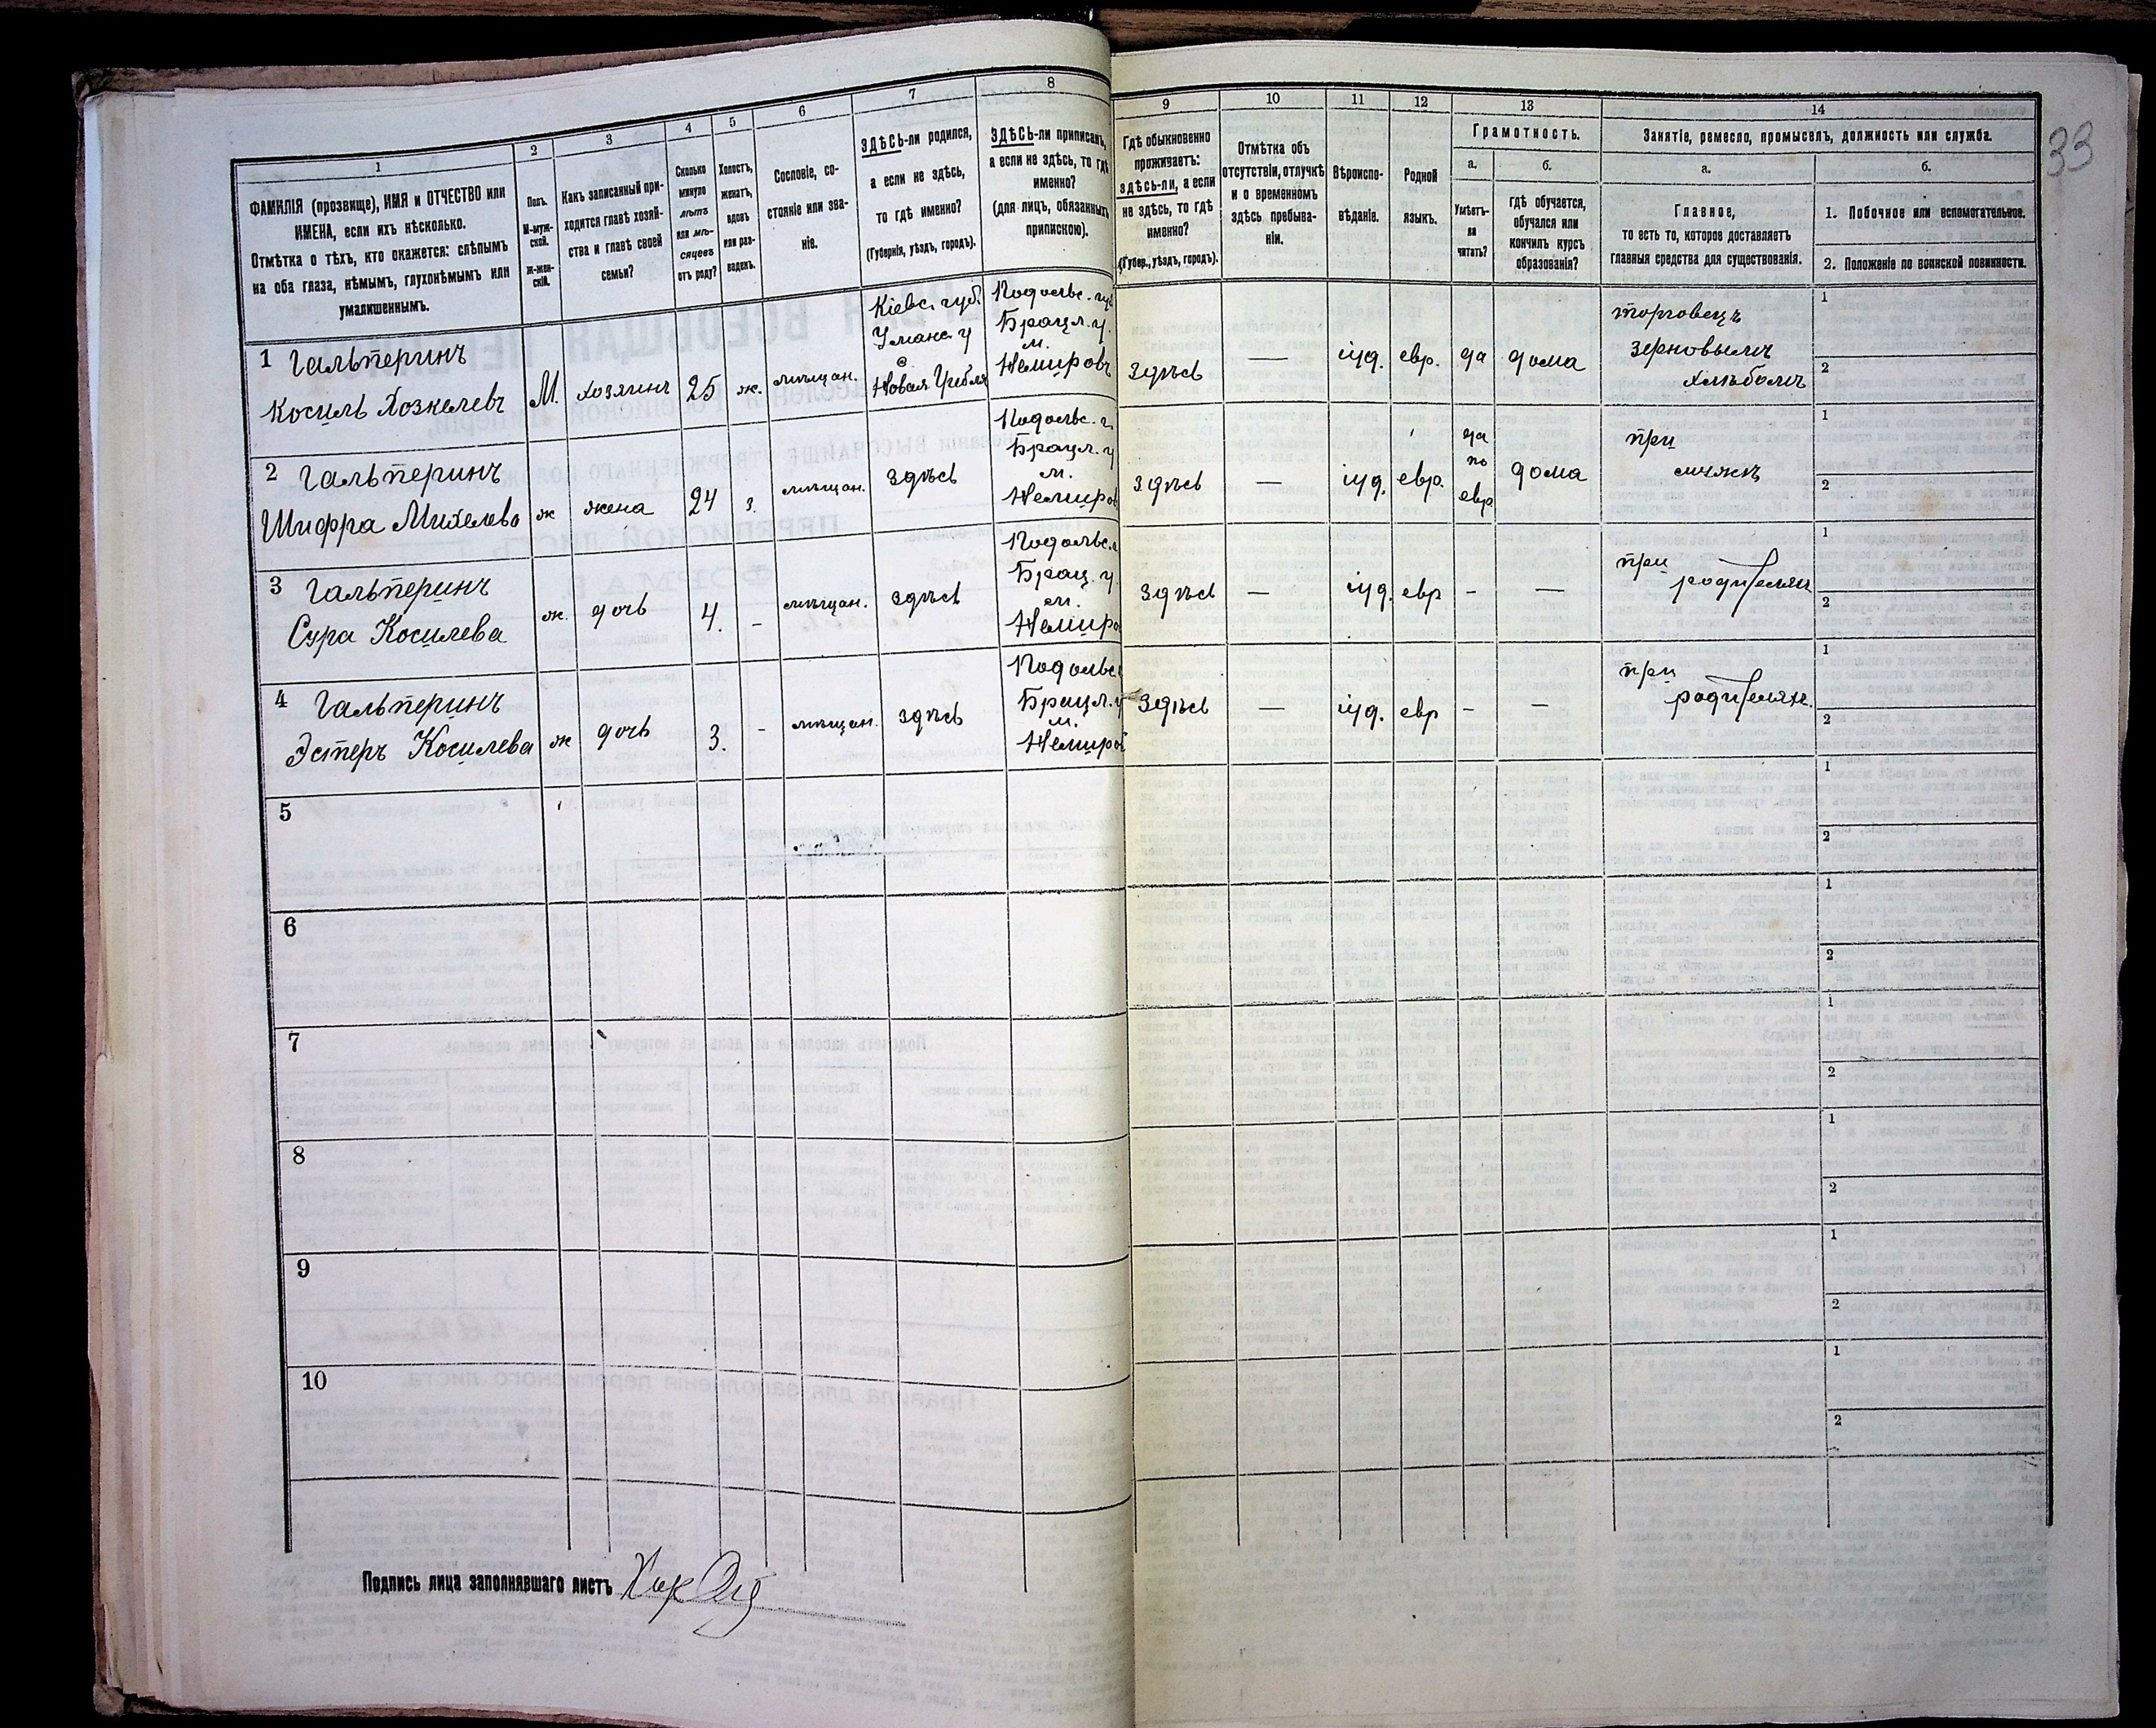 33
1
2
3
4
5
6
7
8
9
10
11
12
13
14
ФАМИЛІЯ (прозвище), ИМЯ и ОТЧЕСТВО или
ИМЕНА, если ихъ нѣсколько.
Отмѣтка о тѣхъ, кто окажется: слѣпымъ
на оба глаза, нѣмымъ, глухонѣмымъ или
умалишеннымъ.
Полъ.
М-муж-
ской.
Ж-жен-
скій.
Какъ записанный при-
ходится главѣ хозяй-
ства и главѣ своей
семьи?
Сколько
минуло
лѣтъ
или мѣ-
сяцевъ
отъ роду?
Холостъ,
женатъ,
вдовъ
или раз-
веденъ.
Сословіе, со-
стояніе или зва-
ніе.
ЗДѢСЬ-ли родился,
а если не здѣсь,
то гдѣ именно?
(Губернія, уѣздъ, городъ).
ЗДѢСЬ-ли приписанъ,
а если не здѣсь, то гдѣ
именно?
(для лицъ, обязанныхъ
припискою).
Гдѣ обыкновенно
проживаетъ:
здѣсь-ли, а если
не здѣсь, то гдѣ
именно?
(Губер., уѣздъ, городъ).
Отмѣтка объ
отсутствіи, отлучкѣ
и о временномъ
здѣсь пребыва-
ніи.
Вѣроиспо-
вѣданіе.
Родной
языкъ.
Грамотность.
а.
Умѣетъ-
ли
читать?
б.
гдѣ обучается,
обучался или
кончилъ курсъ
образованія?
Занятіе, ремесло, промыселъ, должность или служба.
а.
Главное,
то есть то, которое доставляетъ
главныя средства для существованія.
б.
1. Побочное или вспомогательное.
2. Положеніе по воинской повинности.
1 Гальперинъ
Косиль Хозкелевъ
М.
хозяинъ
25
ж.
мѣщан.
Кіевс. губ.
Уманс. у
с
Новая Гребля
Подольс. губ
Брацл. у.
м.
Немировъ
Здѣсь
—
іуд.
евр.
да
дома
торговецъ
зерновымъ
хлѣбомъ
1
2
2 Гальперинъ
Шифра Михелева
ж
жена
24
з.
мѣщан.
здѣсь
Подольс. г.
Брацл. у
м.
Немиров
здѣсь
—
іуд.
евр.
да
по
евр.
дома
при
мужѣ
1
2
3 Гальперинъ
Сура Косилева
ж.
дочь
4.
-
мѣщан.
здѣсь
Подольс.
Брац. у.
м.
Немиро
здѣсь
—
іуд.
евр
-
—
при
родителяхъ
1
2
4 Гальперинъ
Эстеръ Косилева
ж
дочь
3.
-
мѣщан.
здѣсь
Подольс
Брацл. у
м.
Немиров
Здѣсь
—
іуд.
евр
-
—
при
родителяхъ.
1
2
5
1
2
6
1
2
7
1
2
8
1
2
9
1
2
10
1
2
Подпись лица заполнявшаго листъ